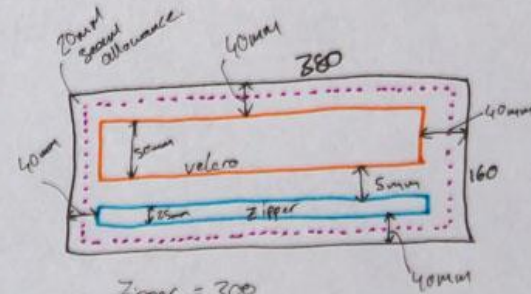 20mm
seam
allowance
40mm
380
40mm
40mm
50mm
velcro
5mm
160
25mm
Zipper
40mm
Zipper = 300